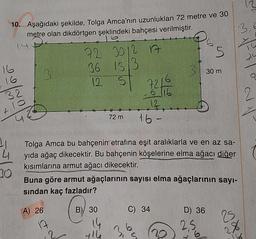 10. Aşağıdaki şekilde, Tolga Amca'nın uzunlukları 72 metre ve 30
metre olan dikdörtgen şeklindeki bahçesi verilmiştir.
72 30 2
36 15 3
12 5
72 6
12
30 m
72 m
16
Tolga Amca bu bahçenin etrafına eşit aralıklarla ve en az sa-
yıda ağaç dikecektir. Bu bahçenin köşelerine elma ağacı diğer
kısımlarına armut ağacı dikecektir.
Buna göre armut ağaçlarının sayısı elma ağaçlarının sayı-
sından kaç fazladır?
A) 26 B) 30 C) 34 D) 36